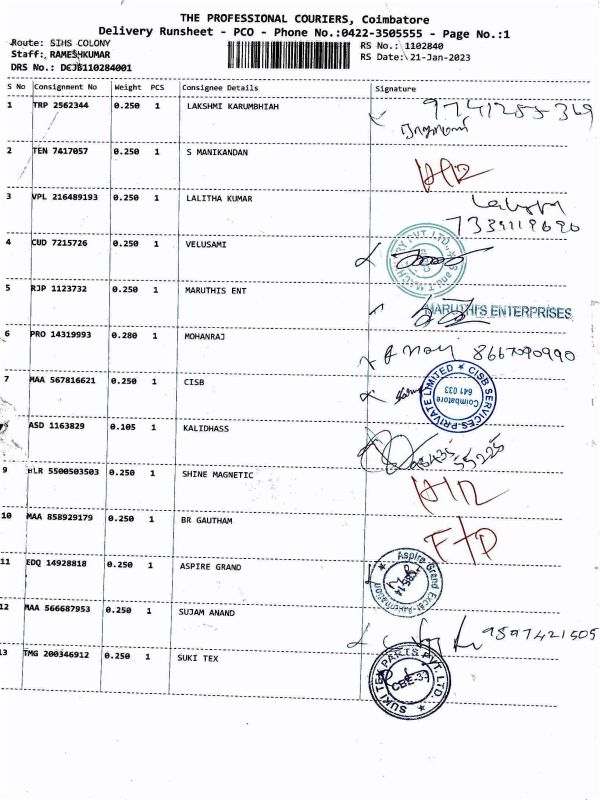 THE PROFESSIONAL COURIERS, Coimbatore
Delivery Runsheet - PCO - Phone No.:0422-3505555 - Page No.:1
Route: SIHS COLONY
RS No.: 1102840
Staff: RAMESHKUMAR
RS Date: 21-Jan-2023
DRS No.: DCJB110284001
S No Consignment No Weight PCS Consignee Details Signature
1 TRP 2562344 0.250 1 LAKSHMI KARUMBHIAH
2 TEN 7417057 0.250 1 S MANIKANDAN
3 VPL 216489193 0.250 1 LALITHA KUMAR
7339119690
4 CUD 7215726 0.250 1 VELUSAMI
5 RJP 1123732 0.250 1 MARUTHIS ENT
MARUTHIS ENTERPRISES
6 PRO 14319993 0.280 1 MOHANRAJ
8667090990
7 MAA 567816621 0.250 1 CISB
CISB SERVICES PRIVATE LIMITED
Coimbatore
641 033
ASD 1163829 0.105 1 KALIDHASS
9 BLR 5500503503 0.250 1 SHINE MAGNETIC
10 MAA 858929179 0.250 1 BR GAUTHAM
11 EDQ 14928818 0.250 1 ASPIRE GRAND
Aspire Grand
12 MAA 566687953 0.250 1 SUJAM ANAND
9597421505
13 TMG 200346912 0.250 1 SUKI TEX
SUKI TEX PARTS PVT. LTD.
CBE-33